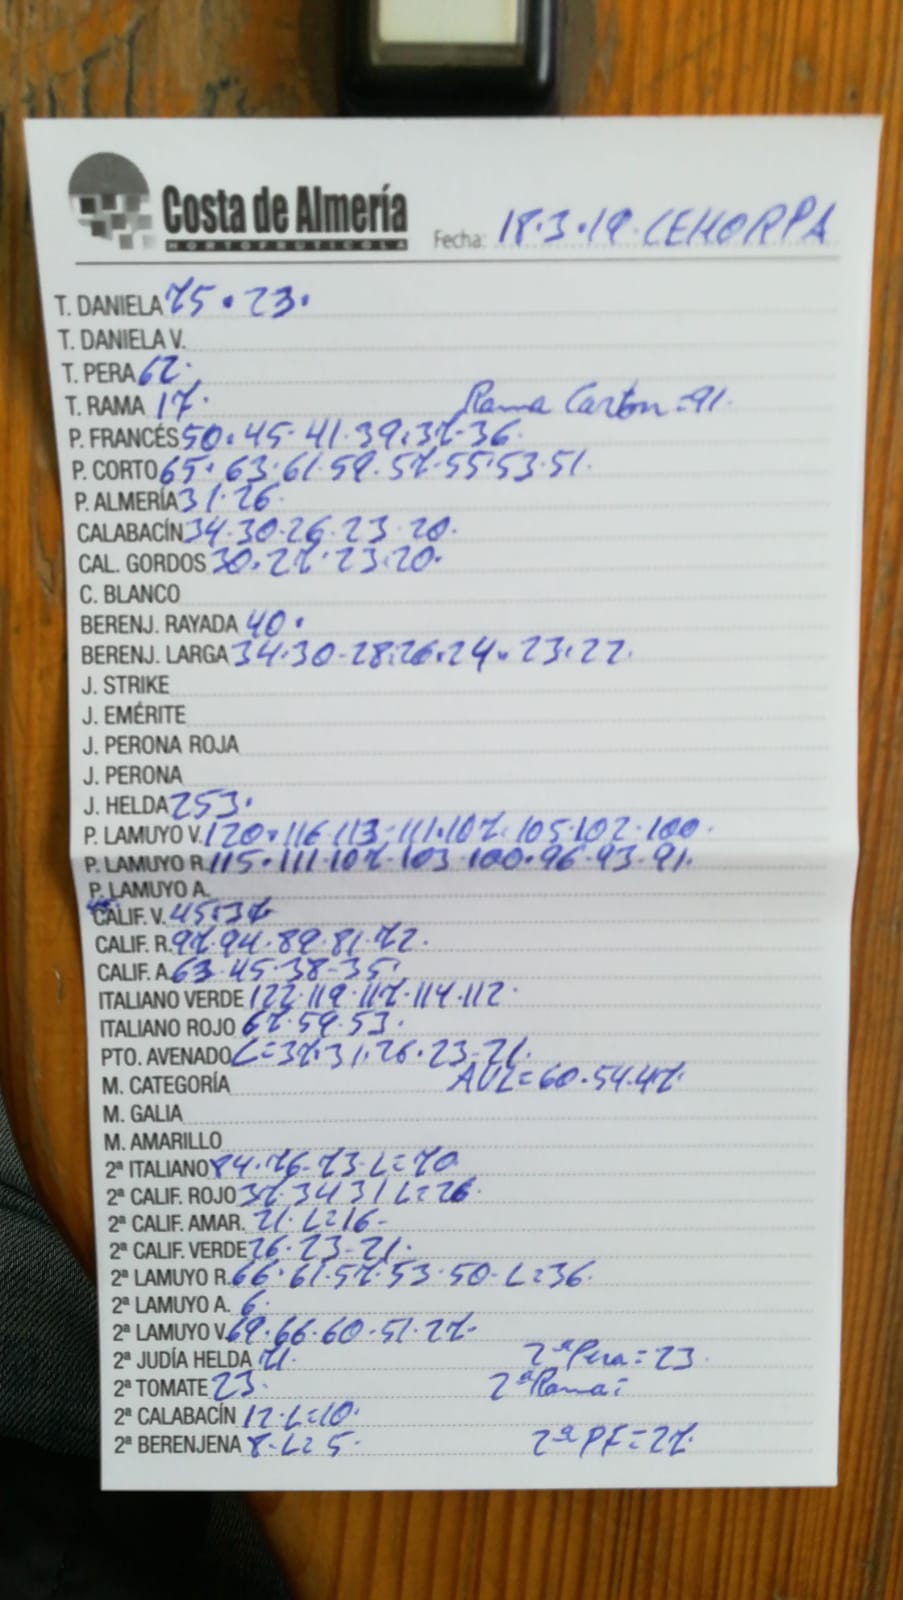 Costa de Almería
HORTOFRUTICOLA
Fecha: 18.3.19. CEHORPA
T. DANIELA 75.23.
T. DANIELA V.
T. PERA 62.
T. RAMA 17. Rama Carton=91.
P. FRANCÉS 50.45.41.39.37.36.
P. CORTO 65.63.61.59.57.55.53.51.
P. ALMERÍA 31.26.
CALABACÍN 34.30.26.23.20.
CAL. GORDOS 30.27.23.20.
C. BLANCO
BERENJ. RAYADA 40.
BERENJ. LARGA 34.30.28.26.24.23.22.
J. STRIKE
J. EMÉRITE
J. PERONA ROJA
J. PERONA
J. HELDA 253.
P. LAMUYO V. 120.116.113.111.107.105.102.100.
P. LAMUYO R. 115.111.107.103.100.96.93.91.
P. LAMUYO A.
CALIF. V. 45.37
CALIF. R. 97.94.89.81.72.
CALIF. A. 63.45.38-35.
ITALIANO VERDE 122.119.117.114.112.
ITALIANO ROJO 67.59.53.
PTO. AVENADO L=37.31.26.23-21.
M. CATEGORÍA AVL=60.54.47.
M. GALIA
M. AMARILLO
2ª ITALIANO 84.76-73-L=70
2ª CALIF. ROJO 37.34 31 L=26.
2ª CALIF. AMAR. 21. L=16-
2ª CALIF. VERDE 26.23-21.
2ª LAMUYO R. 66.61.57.53.50-L=36.
2ª LAMUYO A. 6.
2ª LAMUYO V. 69.66.60.51.27.
2ª JUDÍA HELDA 71. 2ª Pera=23.
2ª TOMATE 23. 2ª Rama=
2ª CALABACÍN 12.L=10.
2ª BERENJENA 8-L=5. 2ª PF=27.